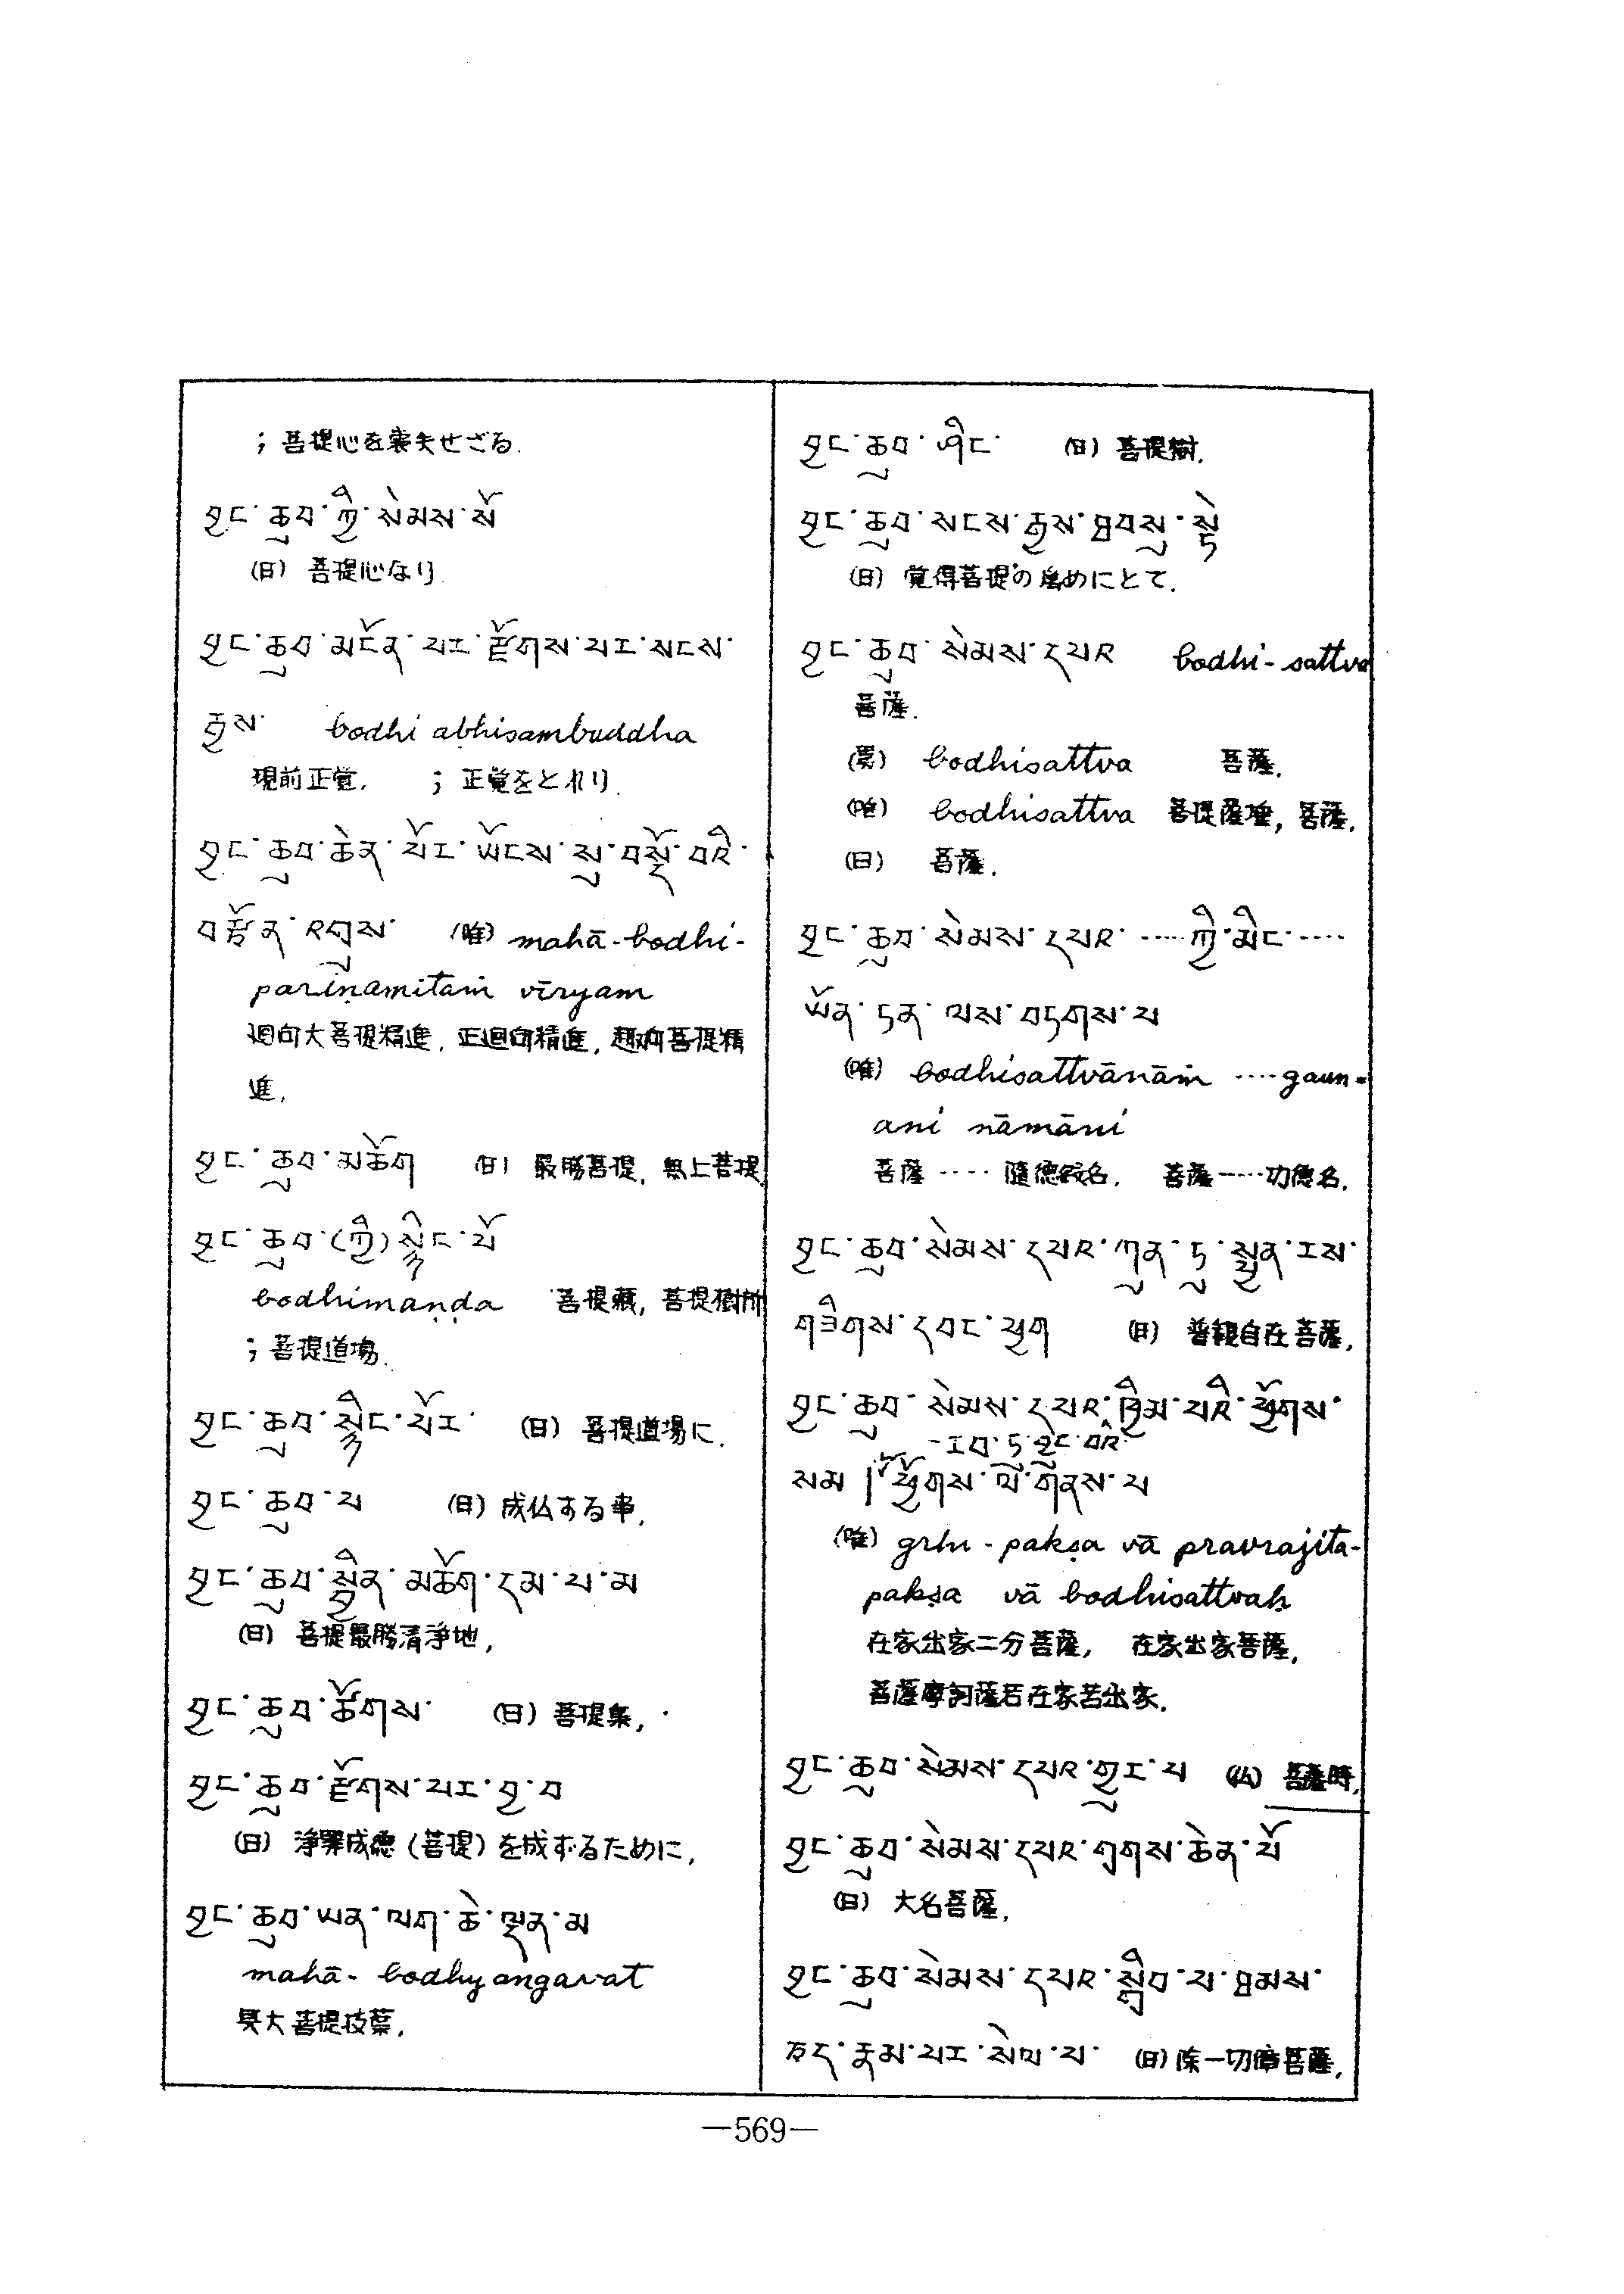 ；菩提心を喪失せざる．
བྱང་ཆུབ་ཀྱི་སེམས་སོ
（日）菩提心なり
བྱང་ཆུབ་མངོན་པར་རྫོགས་པར་སངས་
རྒྱས་ bodhi abhisambuddha
現前正覚． ；正覚をとれり．
བྱང་ཆུབ་ཆེན་པོར་ཡོངས་སུ་བསྔོ་བའི་
བརྩོན་འགྲུས་ （唯）mahā-bodhi-
pariṇamitaṁ vīryam
廻向大菩提精進，正迴向精進，趣向菩提精
進．
བྱང་ཆུབ་མཆོག （日）最勝菩提，無上菩提
བྱང་ཆུབ་(ཀྱི)སྙིང་པོ
bodhimaṇḍa 菩提蔵，菩提樹所
；菩提道場．
བྱང་ཆུབ་སྙིང་པོར་ （日）菩提道場に．
བྱང་ཆུབ་པ （日）成仏する事．
བྱང་ཆུབ་སྦྱིན་མཆོག་དམ་པ་མ
（日）菩提最勝清浄地，
བྱང་ཆུབ་ཚོགས་ （日）菩提集，
བྱང་ཆུབ་རྫོགས་པར་བྱ་བ
（日）浄罪成徳（菩提）を成ずるために，
བྱང་ཆུབ་ཡན་ལག་ཆེ་ལྡན་མ
mahā-bodhyangavat
具大菩提枝葉．
བྱང་ཆུབ་ཤིང་ （日）菩提樹．
བྱང་ཆུབ་སངས་རྒྱས་ཐབསུ་སྟེ
（日）覚得菩提の為めにとて．
བྱང་ཆུབ་སེམས་དཔའ bodhi-sattva
菩薩．
bodhisattva 菩薩．
（唯）bodhisattva 菩提薩埵，菩薩．
（日）菩薩．
བྱང་ཆུབ་སེམས་དཔའ་·····ཀྱི་མིང་····
ཡོན་ཏན་ལས་བཏགས་པ
（唯）bodhisattvānāṁ ····gaun-
ani nāmāni
菩薩···· 隨徳仮名． 菩薩·····功徳名．
བྱང་ཆུབ་སེམས་དཔའ་ཀུན་ཏུ་སྤྱན་རས་
གཟིགས་དབང་ཕྱུག （日）普観自在菩薩．
བྱང་ཆུབ་སེམས་དཔའ་ཁྱིམ་པའི་ཕྱོགས་
-རབ་ཏུ་བྱུང་བའི་
སམ། ཕྱོགས་ལ་གནས་པ
（唯）grhi-pakṣa vā pravrajita-
pakṣa vā bodhisattvaḥ
在家出家二分菩薩， 在家出家菩薩，
菩薩摩訶薩若在家若出家．
བྱང་ཆུབ་སེམས་དཔའ་གྱུར་པ （仏）菩薩時．
བྱང་ཆུབ་སེམས་དཔའ་གྲགས་ཆེན་པོ
（日）大名菩薩．
བྱང་ཆུབ་སེམས་དཔའ་སྒྲིབ་པ་ཐམས་
ཅད་རྣམ་པར་སེལ་པ་ （日）除一切障菩薩．
—569—